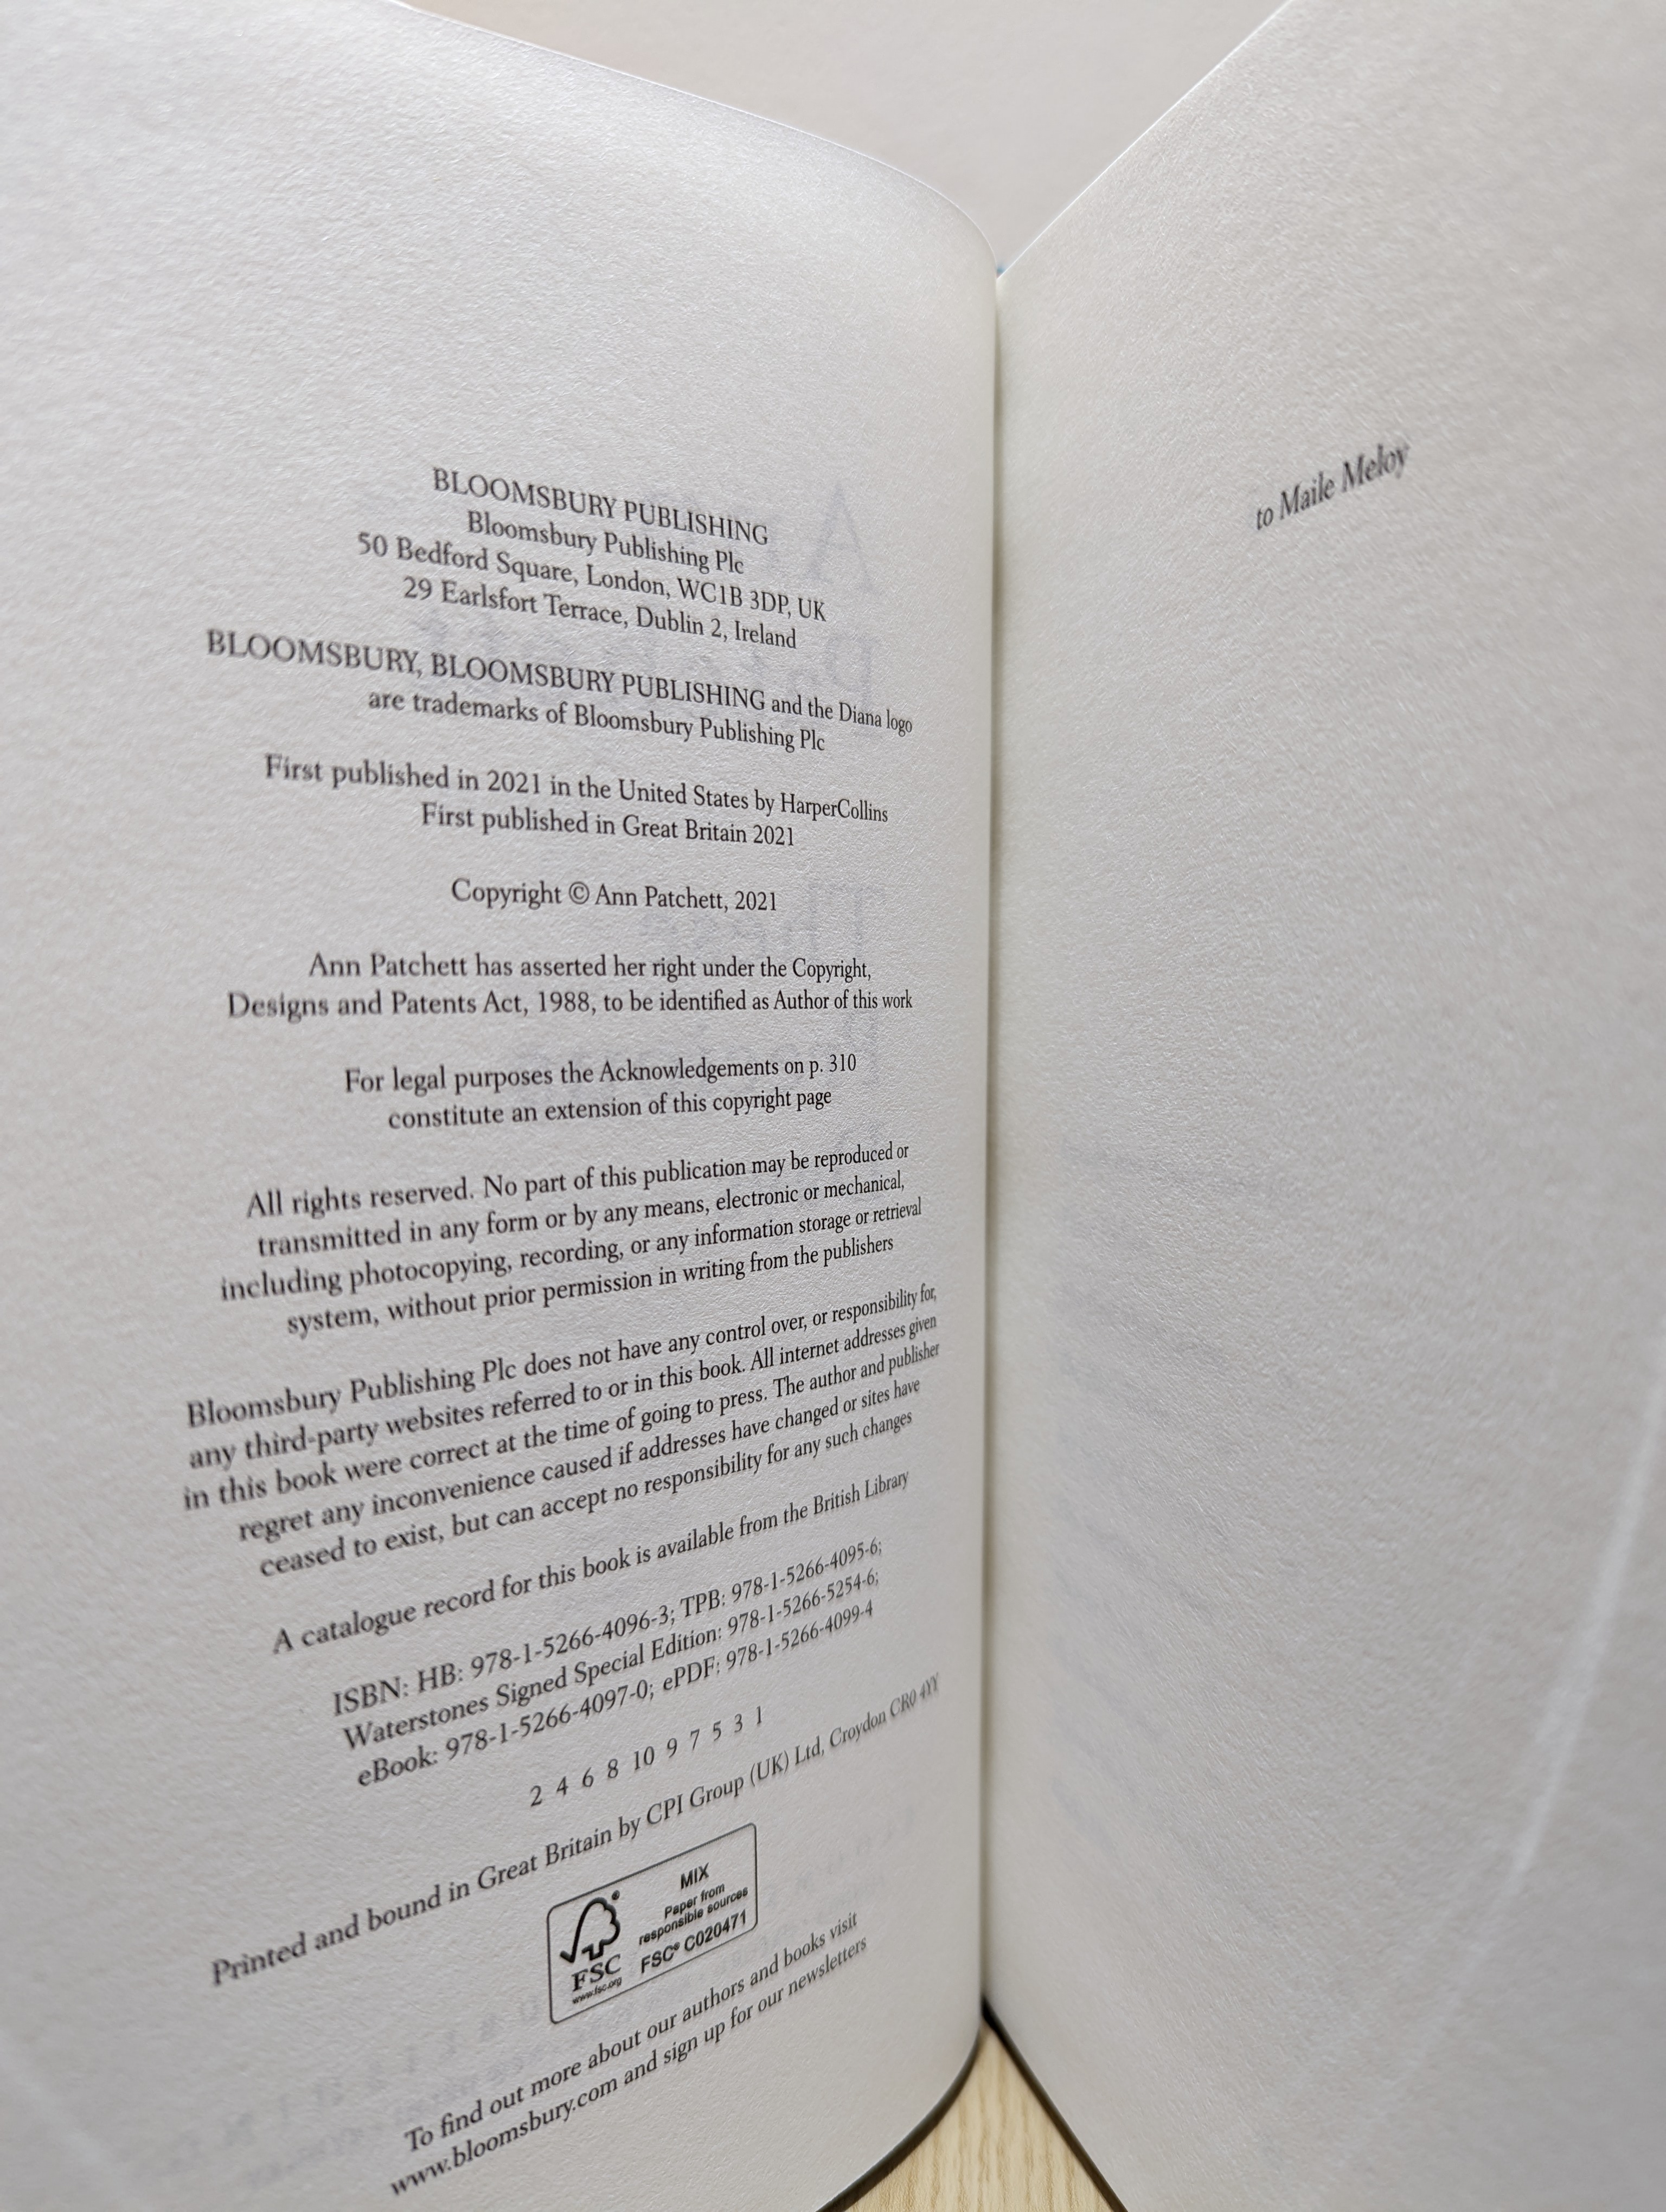 BLOOMSBURY PUBLISHING
Bloomsbury Publishing Plc
50 Bedford Square, London, WC1B 3DP, UK
29 Earlsfort Terrace, Dublin 2, Ireland
BLOOMSBURY, BLOOMSBURY PUBLISHING and the Diana logo
are trademarks of Bloomsbury Publishing Plc
First published in 2021 in the United States by HarperCollins
First published in Great Britain 2021
Copyright © Ann Patchett, 2021
Ann Patchett has asserted her right under the Copyright,
Designs and Patents Act, 1988, to be identified as Author of this work
For legal purposes the Acknowledgements on p. 310
constitute an extension of this copyright page
All rights reserved. No part of this publication may be reproduced or
transmitted in any form or by any means, electronic or mechanical,
including photocopying, recording, or any information storage or retrieval
system, without prior permission in writing from the publishers
Bloomsbury Publishing Plc does not have any control over, or responsibility for,
any third-party websites referred to or in this book. All internet addresses given
in this book were correct at the time of going to press. The author and publisher
regret any inconvenience caused if addresses have changed or sites have
ceased to exist, but can accept no responsibility for any such changes
A catalogue record for this book is available from the British Library
ISBN: HB: 978-1-5266-4096-3; TPB: 978-1-5266-4095-6;
Waterstones Signed Special Edition: 978-1-5266-5254-6;
eBook: 978-1-5266-4097-0; ePDF: 978-1-5266-4099-4
2 4 6 8 10 9 7 5 3 1
Printed and bound in Great Britain by CPI Group (UK) Ltd, Croydon CR0 4YY
MIX
Paper from
responsible sources
FSC® C020471
FSC
www.fsc.org
To find out more about our authors and books visit
www.bloomsbury.com and sign up for our newsletters
to Maile Meloy